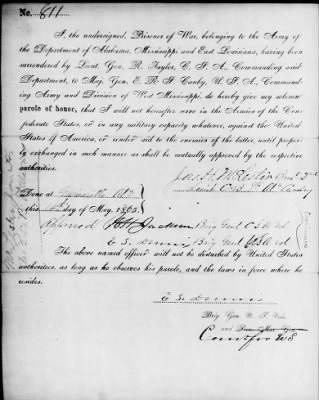 No. 811
I, the undersigned, Prisoner of War, belonging to the Army of
the Department of Alabama, Mississippi and East Louisiana, having been
surrendered by Lieut. Gen. R. Taylor, C. S. A., Commanding said
Department, to Maj. Gen. E. R. S. Canby, U. S. A., Command-
ing Army and Division of West Mississippi, do hereby give my solemn
parole of honor, that I will not hereafter serve in the Armies of the Con-
federate States, or in any military capacity whatever, against the United
States of America, or render aid to the enemies of the latter, until proper-
ly exchanged in such manner as shall be mutually approved by the respective
authorities.
Done at
this day of May, 1865.
Approved Jackson Brig Genl C S A
E S Dennis Brig Genl
The above named officer will not be disturbed by United States
authorities, as long as he observes his parole, and the laws in force where he
resides.
E. S. Dennis
Brig. Gen. U. S. Vols.
and
U S